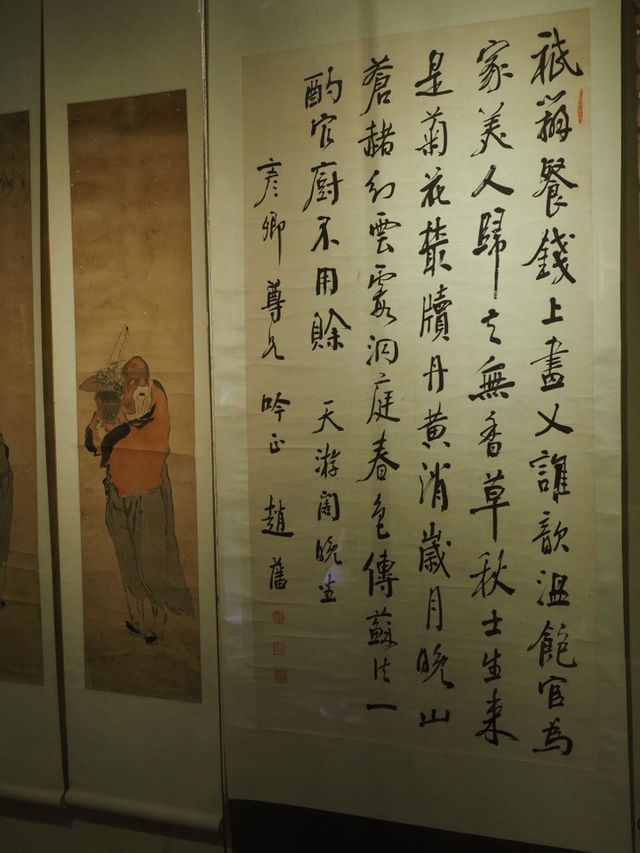 祗辦餐錢上畫叉誰歆溫飽官為
家美人歸去無香草秋士生來
是菊花叢牘丹黃消歲月晚山
蒼赭幻雲霞洞庭春色傳蘇法一
酌官廚不用賒 天游閣晚坐
彥卿尊兄 吟正 趙藩